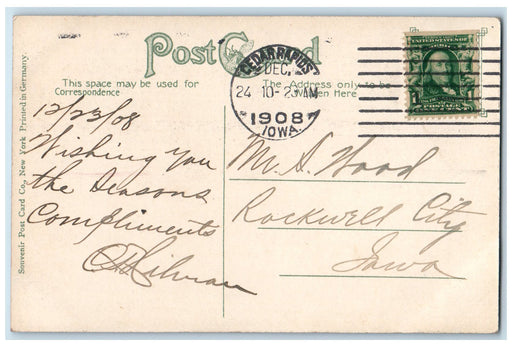 Post Card
This space may be used for
Correspondence
The Address only to be
Written Here
CEDAR RAPIDS
DEC.
24 10-
1908
IOWA.
UNITED STATES OF
POSTAGE
12/23/08
Wishing you
the Seasons
Compliments
Mr. S. Wood
Rockwell City
Iowa
Souvenir Post Card Co., New York Printed in Germany.